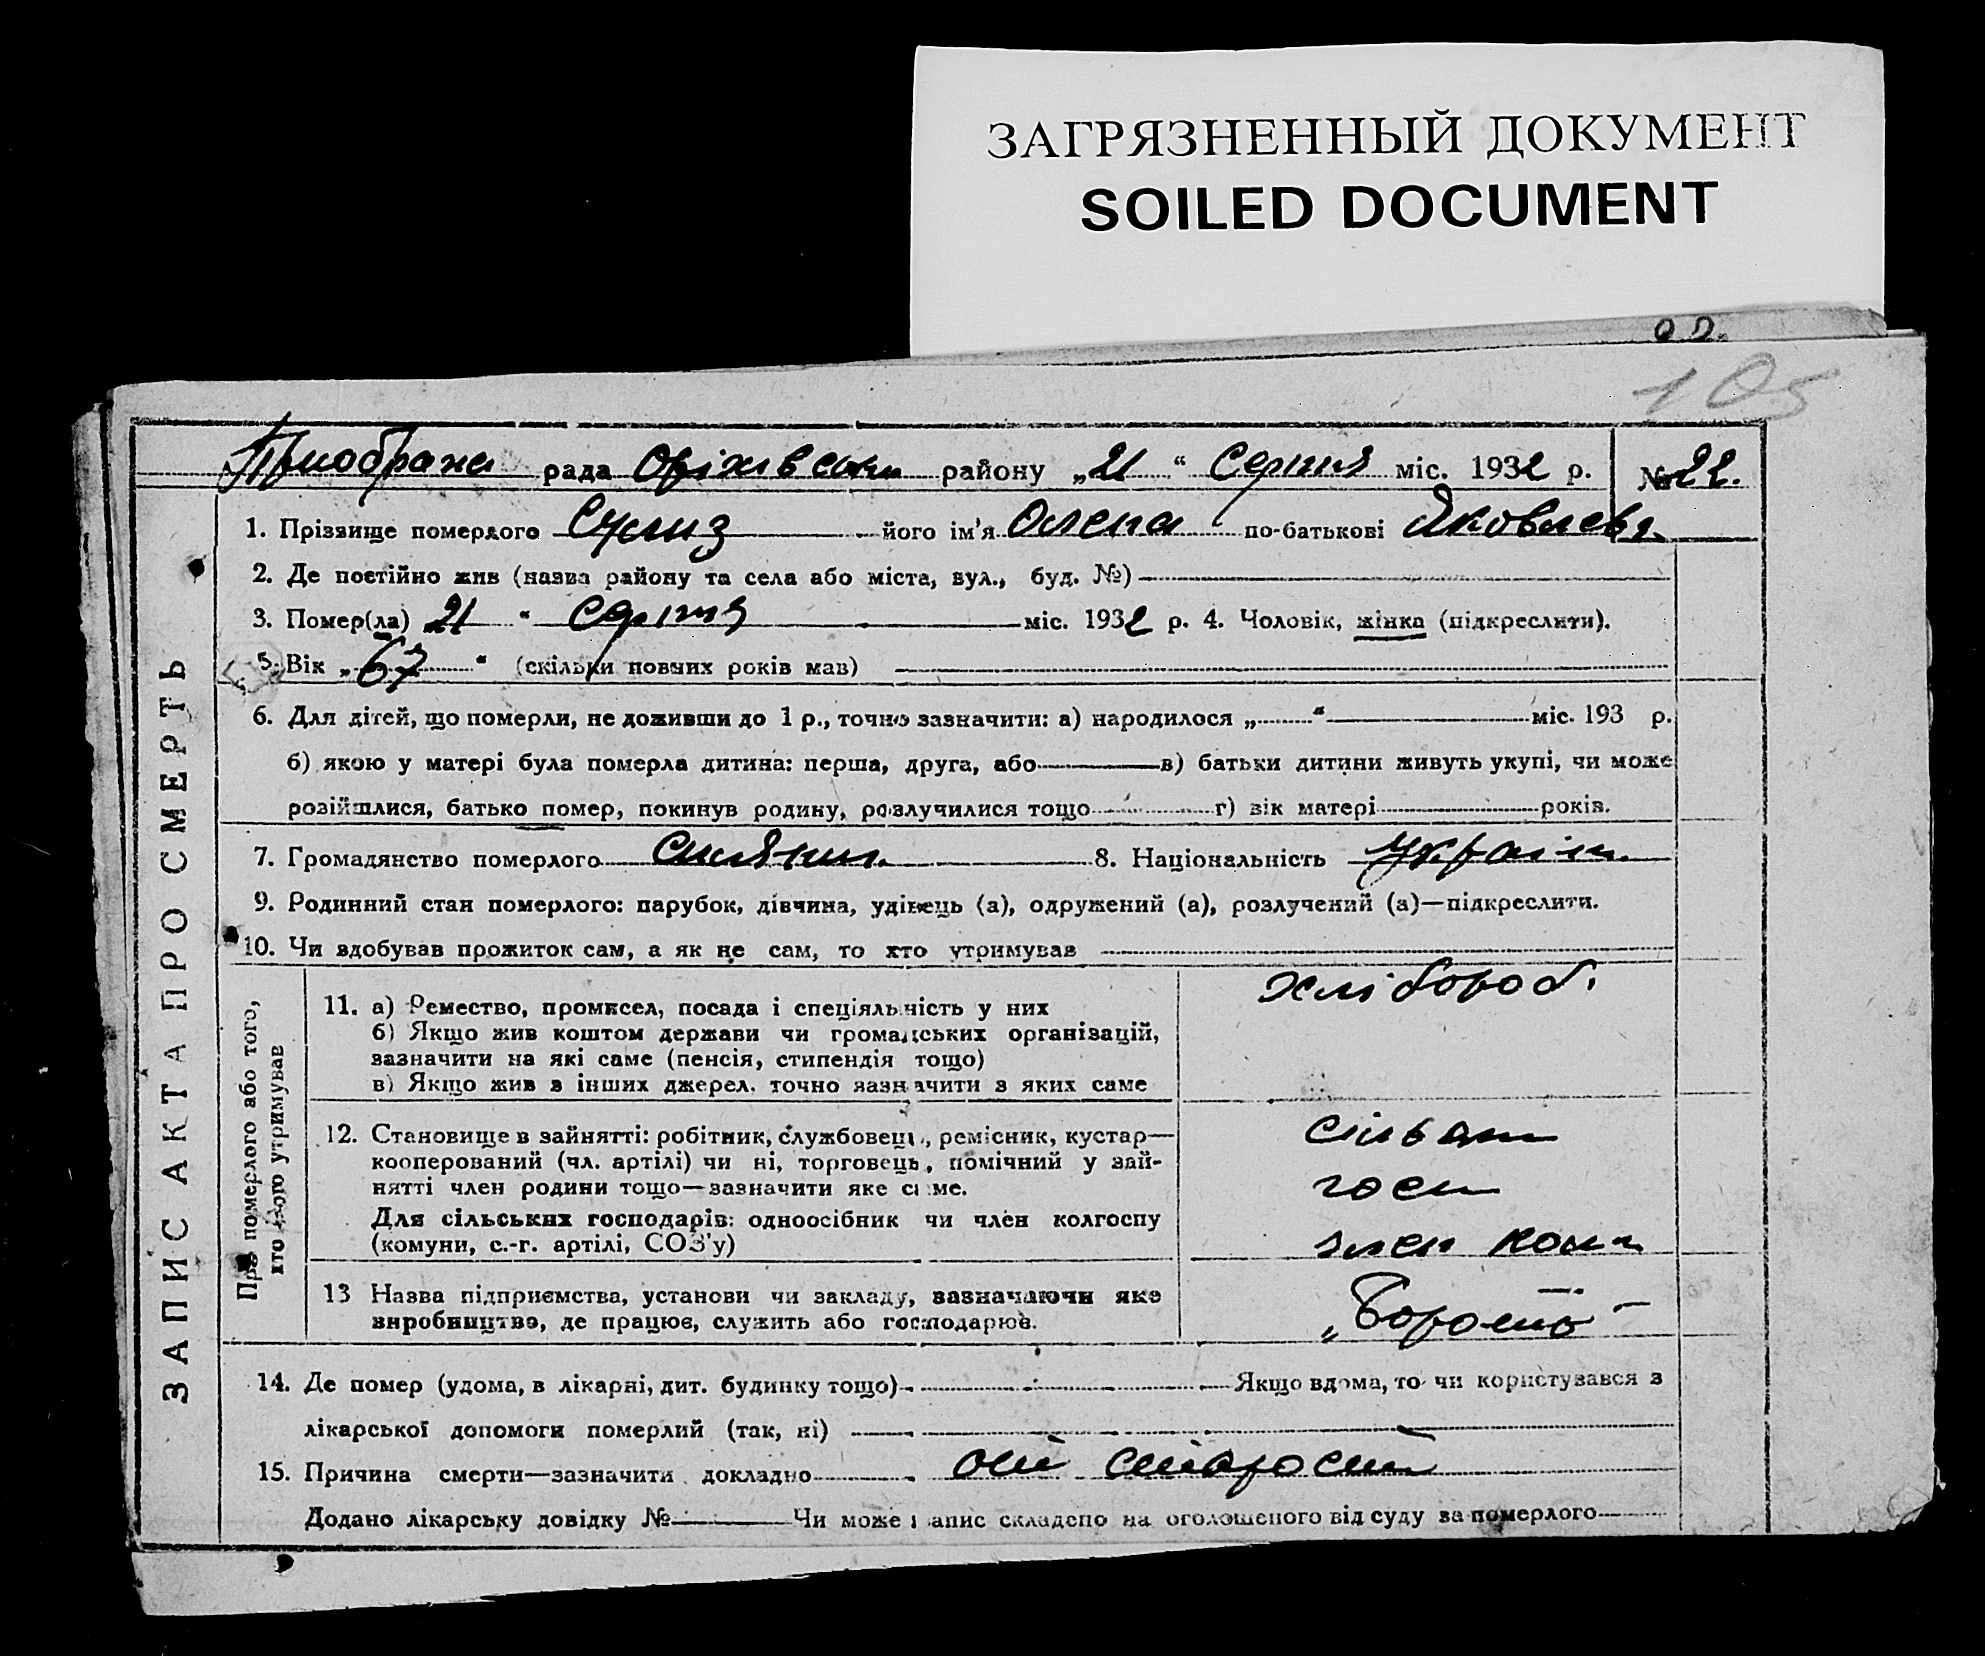 ЗАГРЯЗНЕННЫЙ ДОКУМЕНТ
SOILED DOCUMENT
105
рада Оріхівськ району „21“ Серпня міс. 1932 р. № 22.
1. Прізвище померлого його ім'я Олена по-батькові Яковлевн.
2. Де постійно жив (назва району та села або міста, вул., буд. №)
3. Помер(ла) „21“ Серпня міс. 1932 р. 4. Чоловік, жінка (підкреслити).
5. Вік „67“ (скільки повних років мав)
6. Для дітей, що померли, не доживши до 1 р., точно зазначити: а) народилося „ “ міс. 193 р.
б) якою у матері була померла дитина: перша, друга, або в) батьки дитини живуть укупі, чи може
розійшлися, батько помер, покинув родину, розлучилися тощо г) вік матері років.
7. Громадянство померлого 8. Національність україн.
9. Родинний стан померлого: парубок, дівчина, удівець (а), одружений (а), розлучений (а)—підкреслити.
10. Чи здобував прожиток сам, а як не сам, то хто утримував
ЗАПИС АКТА ПРО СМЕРТЬ
Про померлого або того,
хто його утримував
11. а) Ремество, промисел, посада і спеціяльність у них хлібороб.
б) Якщо жив коштом держави чи громадських організацій,
зазначити на які саме (пенсія, стипендія тощо)
в) Якщо жив з інших джерел, точно зазначити з яких саме
12. Становище в занятті: робітник, службовець, ремісник, кустар—
кооперований (чл. артілі) чи ні, торговець, помічний у зай-
нятті член родини тощо—зазначити яке саме.
Для сільських господарів: одноосібник чи член колгоспу
(комуни, с.-г. артілі, СОЗ'у)
член
13 Назва підприємства, установи чи закладу, зазначаючи яке
виробництво, де працює, служить або господарює.
14. Де помер (удома, в лікарні, дит. будинку тощо) Якщо вдома, то чи користувався з
лікарської допомоги померлий (так, ні)
15. Причина смерти—зазначити докладно от старости
Додано лікарську довідку № Чи може запис складено на оголошеного від суду за померлого